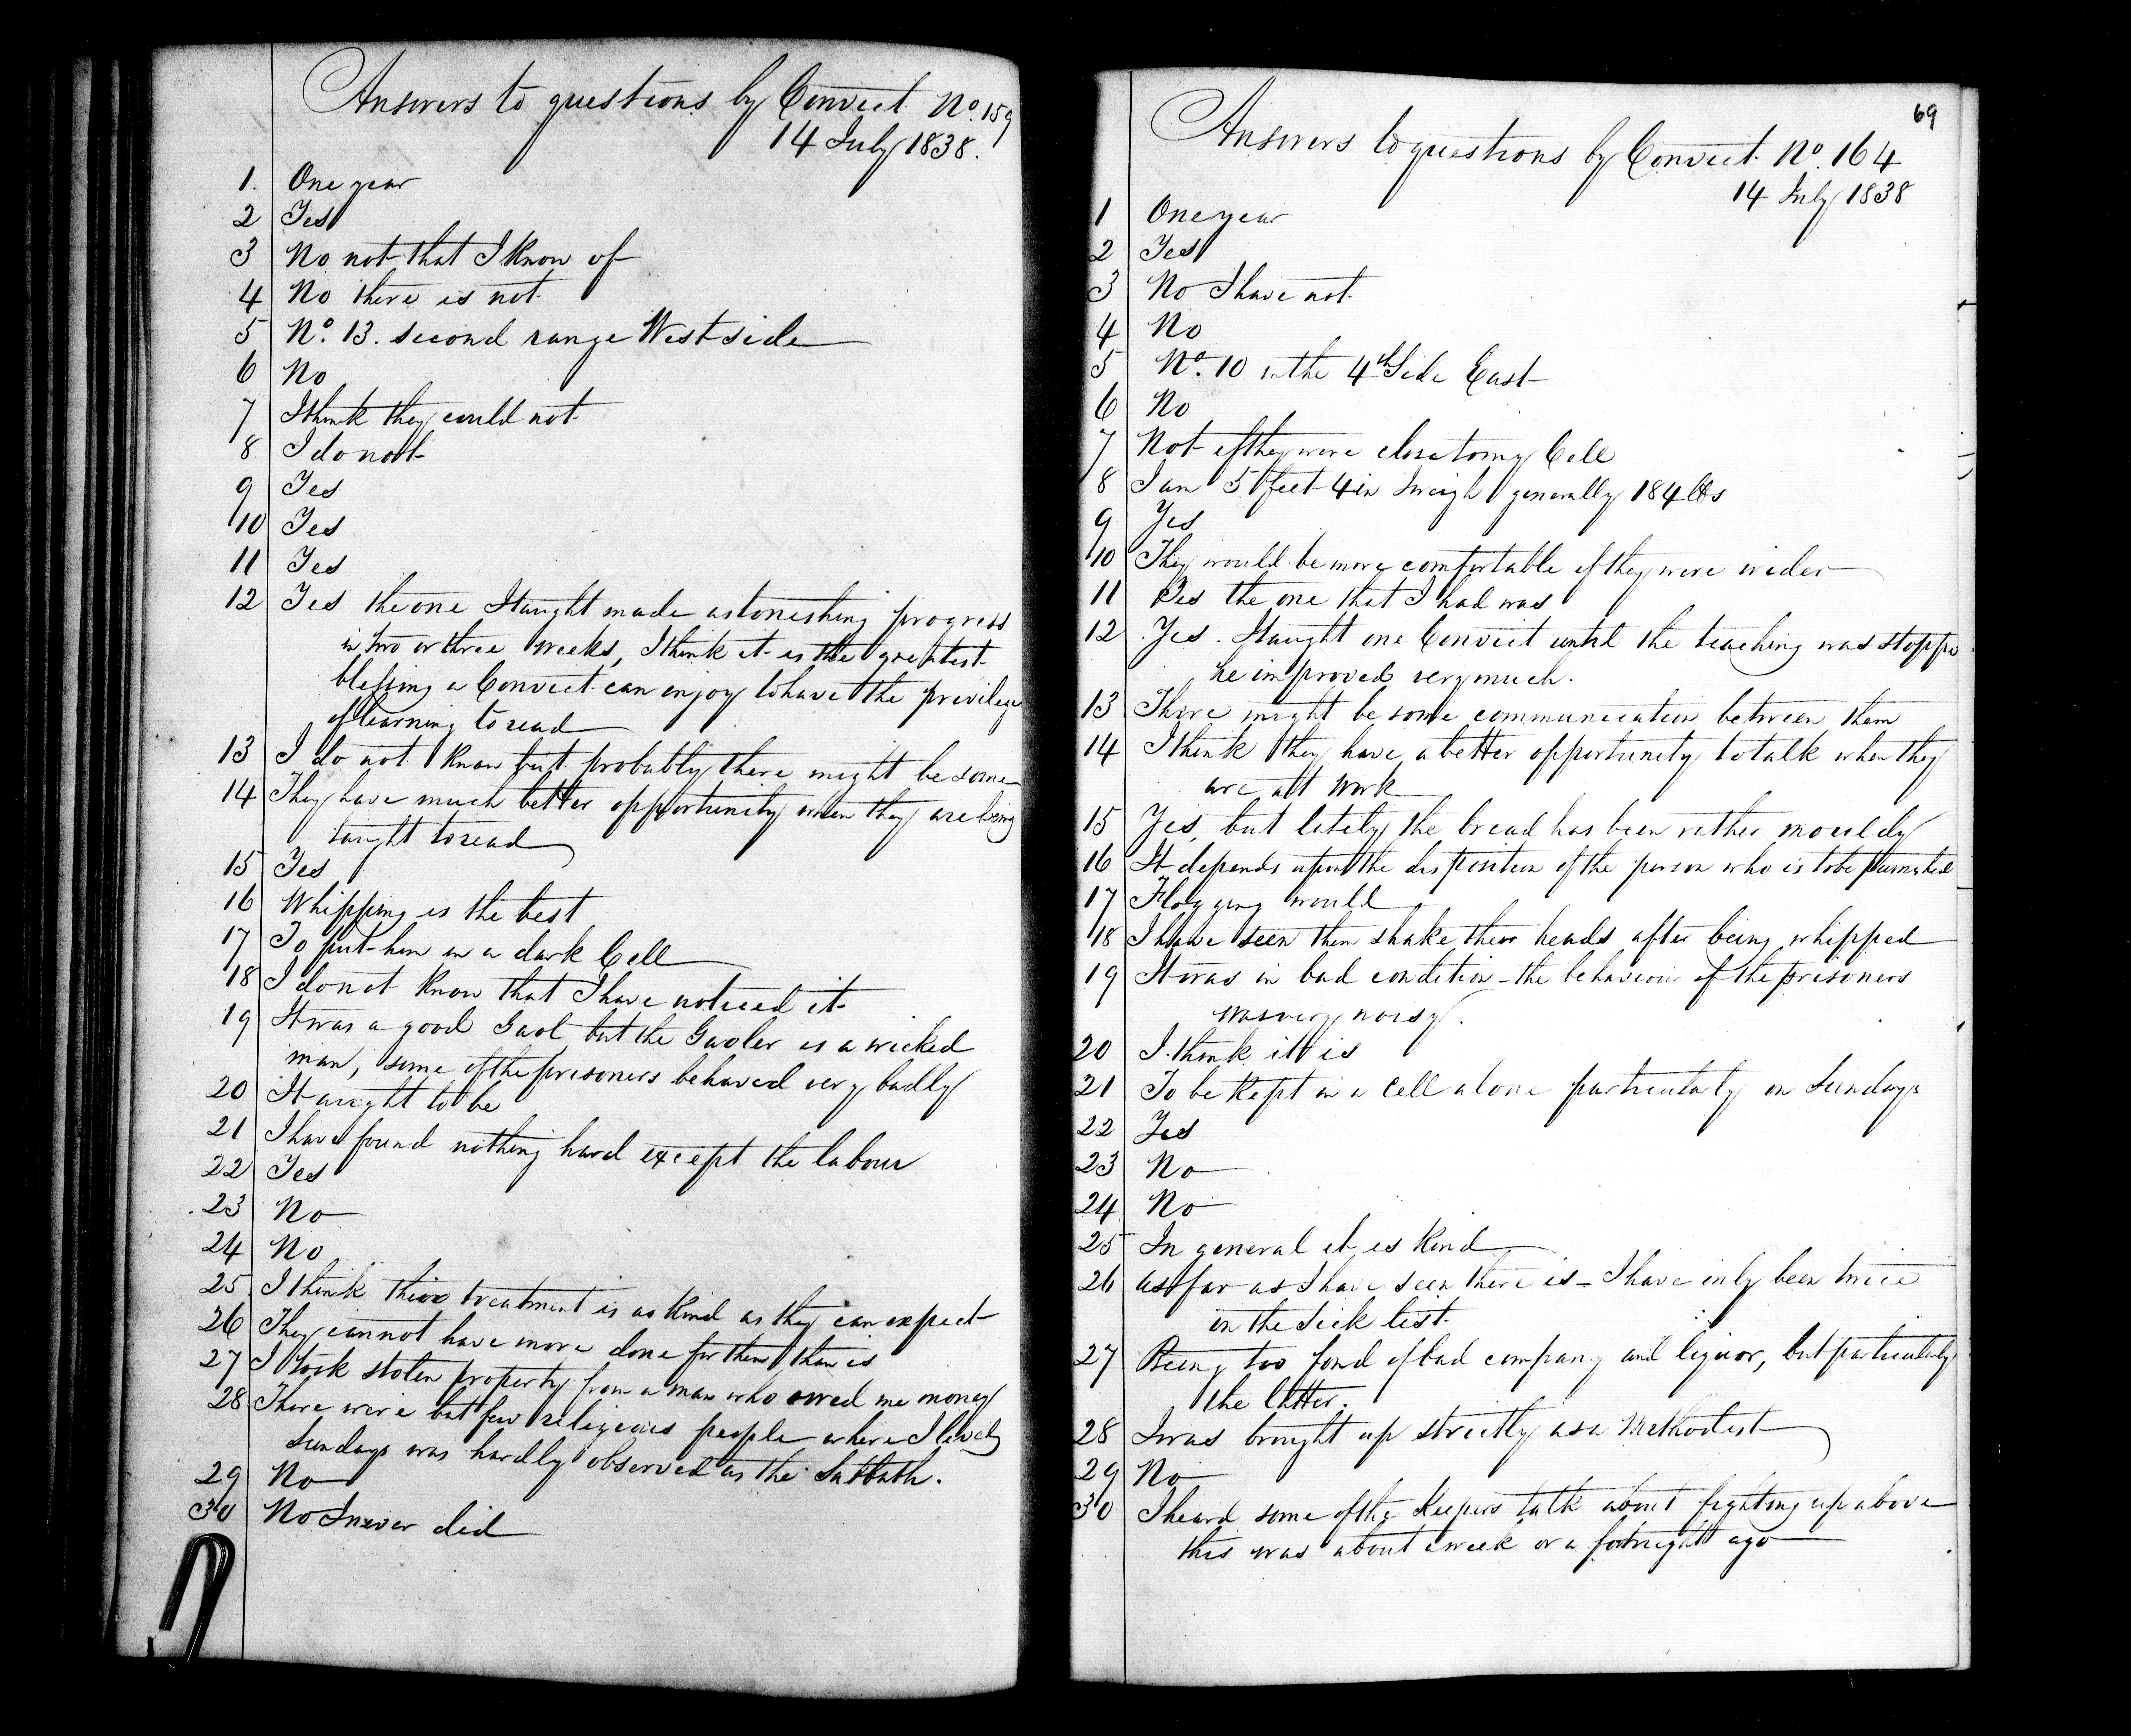 Answers to questions by Convict No. 159
14 July 1838.
1. One year
2 Yes
3 No not that I know of
4 No there is not
5 No. 13. second range West side
6 No
7 I think they could not
8 I do not
9 Yes
10 Yes
11 Yes
12 Yes the one I taught made astonishing progress
in two or three weeks, I think it is the greatest
blessing a Convict can enjoy to have the privilege
of learning to read
13 I do not know but probably there might be some
14 They have much better opportunity when they are being
taught to read
15 Yes
16 Whipping is the best
17 To put him in a dark Cell
18 I do not know that I have noticed it
19 It was a good Gaol but the Gaoler is a wicked
man, some of the prisoners behaved very badly
20 It aught to be
21 I have found nothing hard except the labour
22 Yes
23 No
24 No
25 I think their treatment is as kind as they can expect
26 They cannot have more done for them than is
27 I took stolen property from a man who owed me money
28 There were but few religious people where I lived
Sundays was hardly observed as the Sabbath.
29 No
30 No I never did
69
Answers to questions by Convict No. 164
14 July 1838
1 One year
2 Yes
3 No I have not
4 No
5 No. 10 in the 4th Side East
6 No
7 Not if they were close to my Cell
8 I am 5 feet 4 in I weigh generally 184 lbs
9 Yes
10 They would be more comfortable if they were wider
11 Yes the one that I had was
12 Yes. I taught one Convict until the teaching was stopp
he improved very much.
13 There might be some communication between them
14 I think they have a better opportunity to talk when they
are att work
15 Yes, but lately the bread has been rather mouldy
16 It depends upon the disposition of the person who is to be punished
17 Flogging would
18 I have seen them shake their heads after being whipped
19 It was in bad condition - the behaviour of the prisoners
was very noisy.
20 I think it is
21 To be kept in a Cell alone particularly on Sundays
22 Yes
23 No
24 No
25 In general it is kind
26 as far as I have seen there is - I have only been twice
in the Sick list
27 Being too fond of bad company and liquor, but particularly
the latter.
28 I was brought up strictly as a Methodist
29 No
30 I heard some of the Keepers talk about fighting up above
this was about a week or a fortnight ago